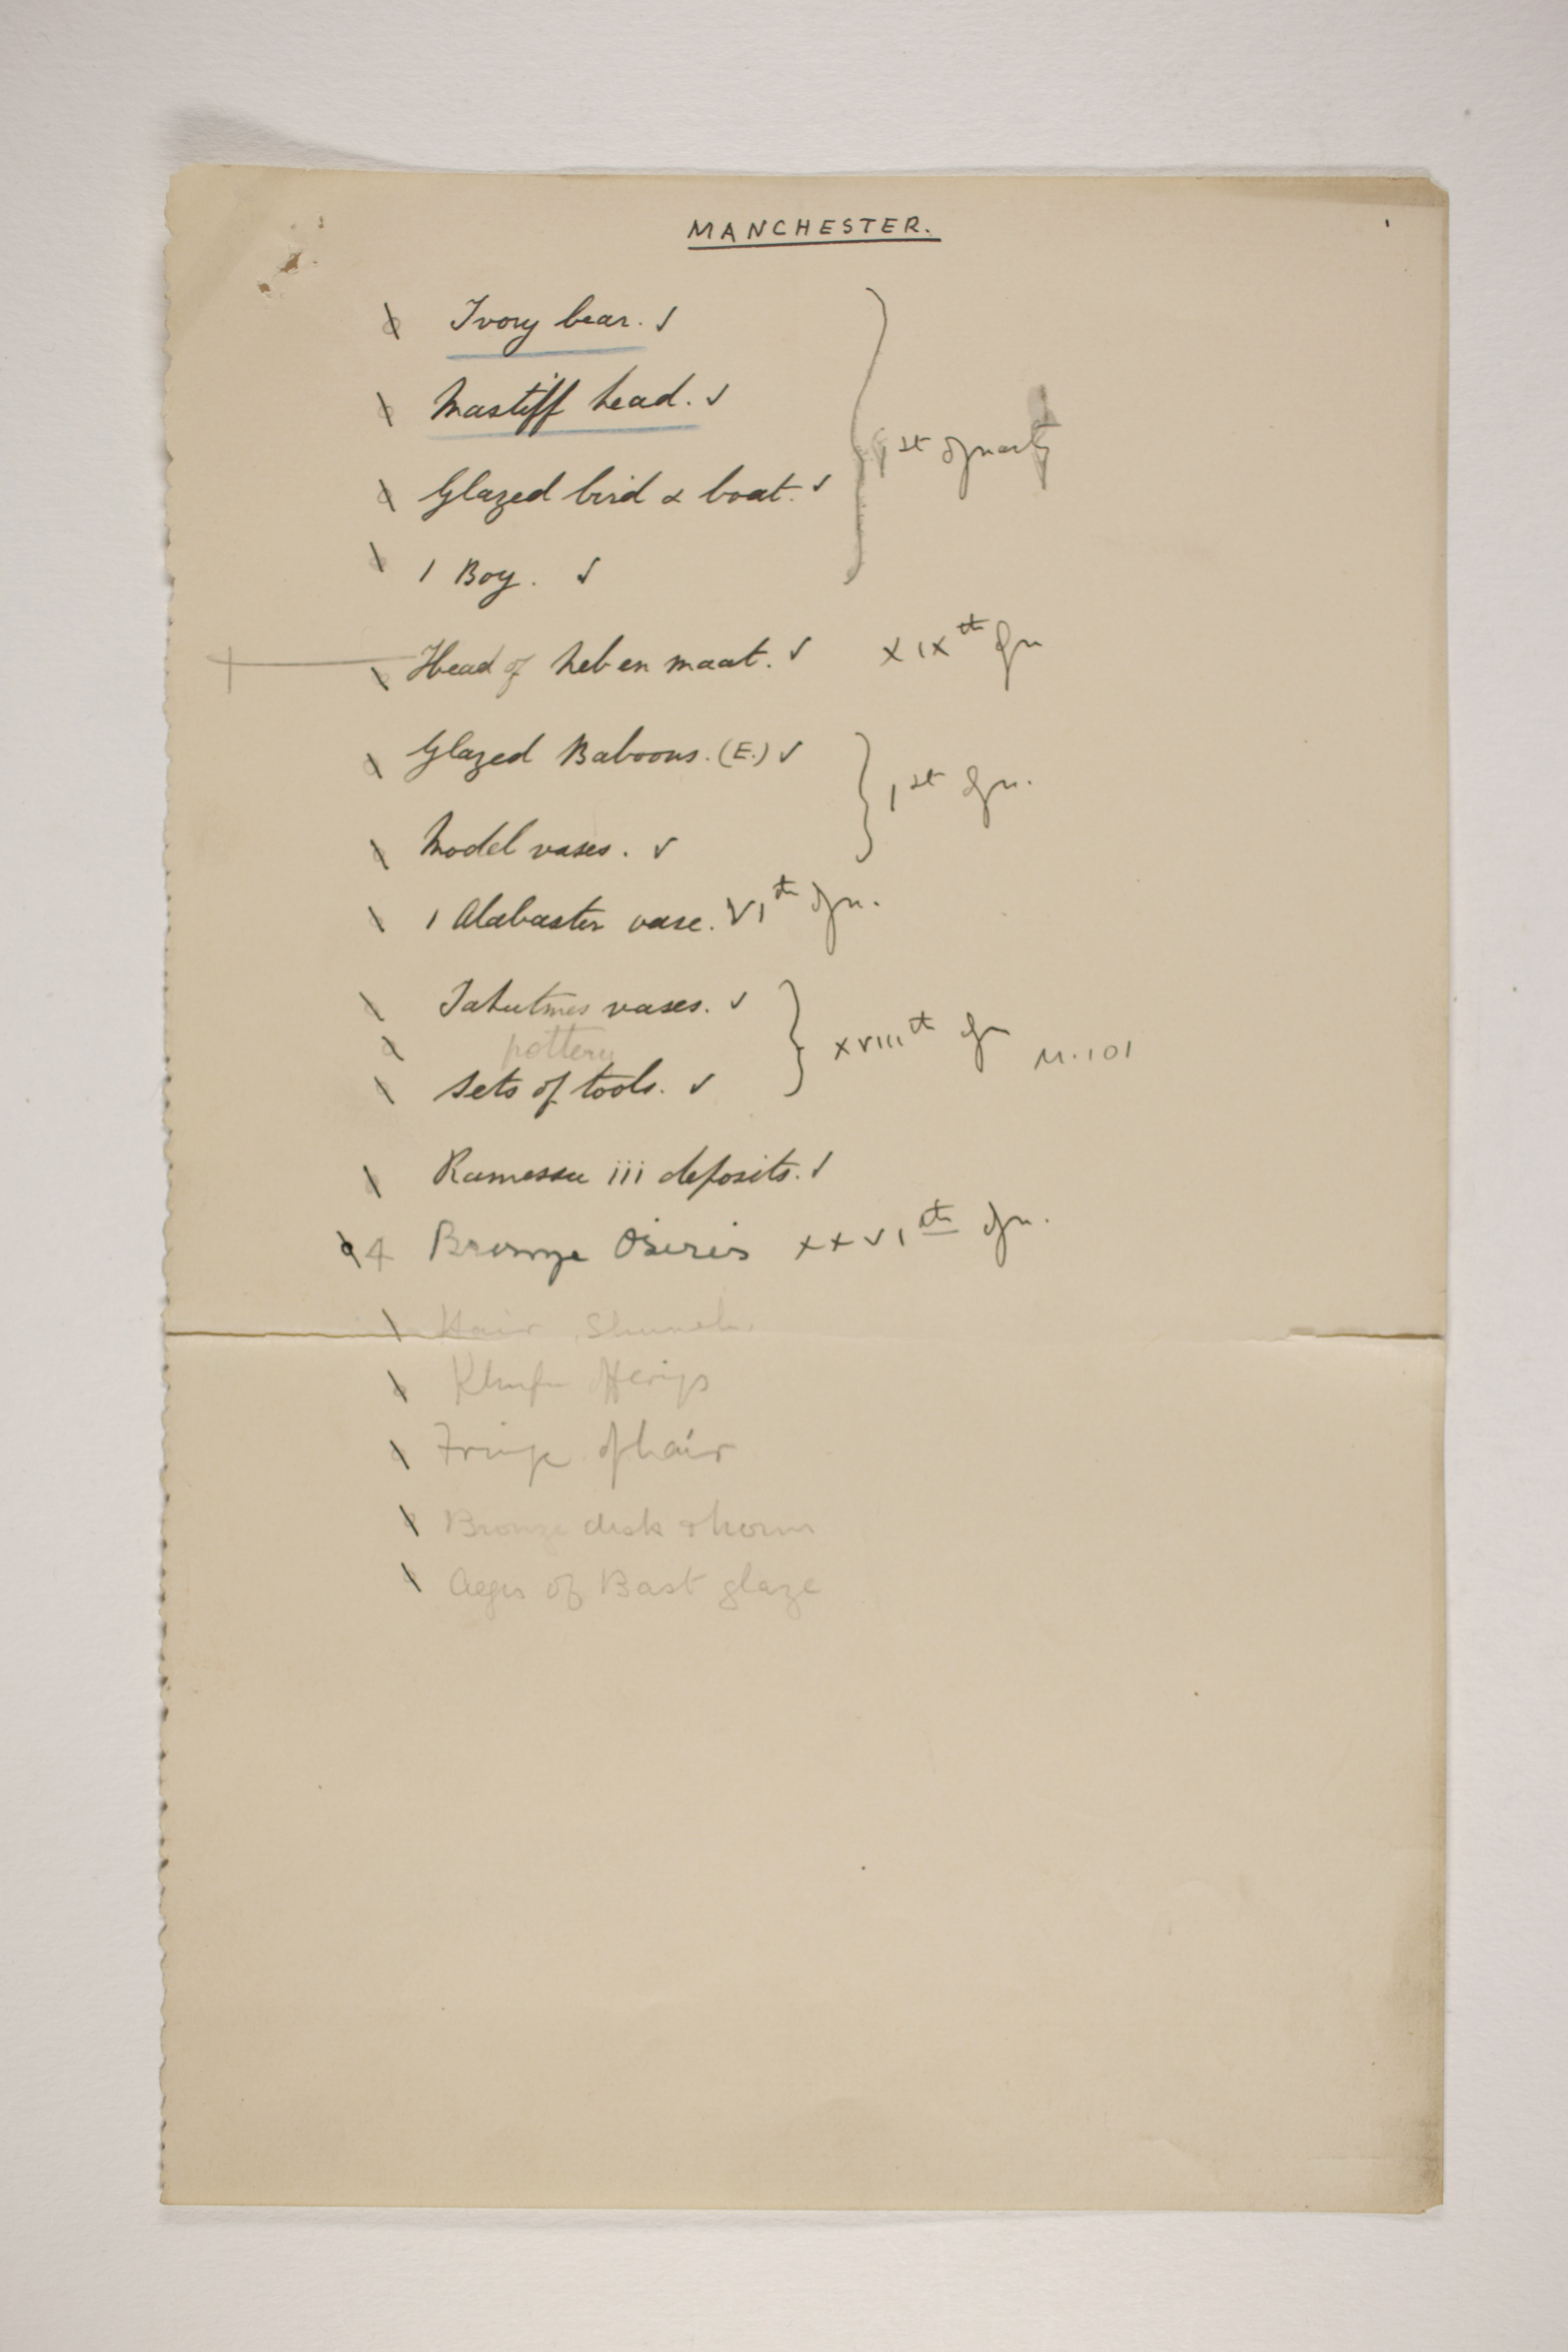 MANCHESTER.
Ivory bear. ✓
Mastiff head. ✓
1st dynasty
Glazed bird & boat. ✓
1 Boy. ✓
Head of Neb en maat. ✓ XIXth dyn
Glazed Baboons. (E.) ✓
1st dyn.
Model vases. ✓
1 Alabaster vase. VIth dyn.
Tahutmes vases. ✓
pottery
XVIIIth dyn M.101
Sets of tools. ✓
Ramessu iii deposits. ✓
4 Bronze Osiris XXVIth dyn.
Hair Shuneh.
Khufu offerings
Fringe of hair
Bronze disk & horns
Aegis of Bast glaze